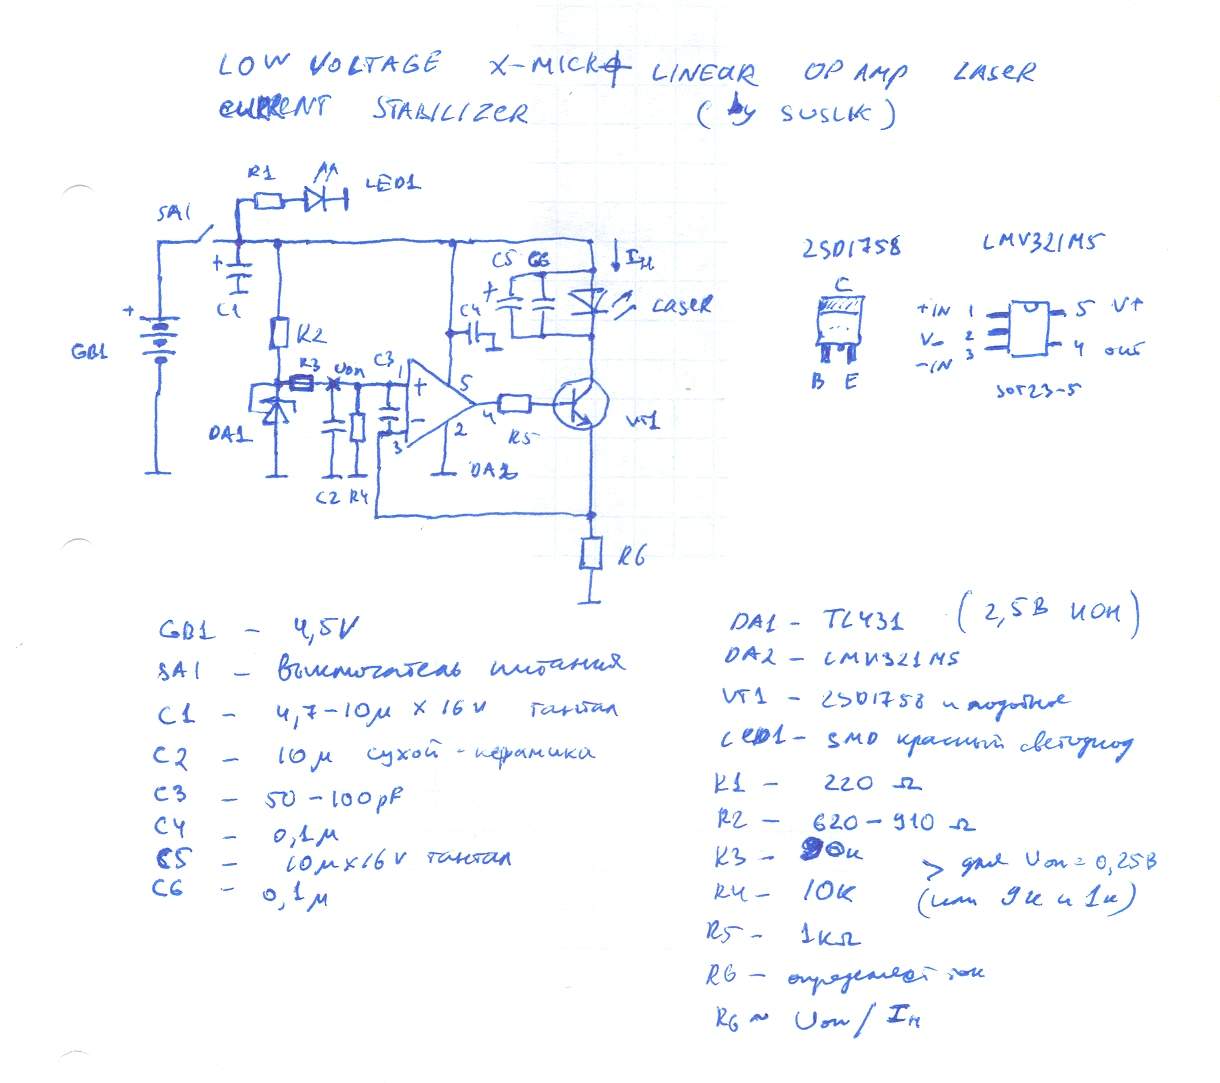 LOW VOLTAGE X-MICRO LINEAR OP AMP LASER
CURRENT STABILIZER (by SUSLIK)
R1
LED1
SA1
+
C1
+
GB1
R2
R3
Uоп
C3
DA1
C2
R4
1
+
-
3
5
2
4
DA2
C4
C5
C6
+
Iн
LASER
R5
VT1
R6
2SD1758
C
B E
LMV321M5
+IN 1
V- 2
-IN 3
5 V+
4 OUT
SOT23-5
GB1 - 4,5V
SA1 - Выключатель питания
C1 - 4,7-10μ x 16V тантал
C2 - 10μ сухой-керамика
C3 - 50-100pF
C4 - 0,1μ
C5 - 10μx16V тантал
C6 - 0,1μ
DA1 - TL431 (2,5В ИОН)
DA2 - LMV321M5
VT1 - 2SD1758 и подобные
LED1 - SMD красный светодиод
R1 - 220 Ω
R2 - 620-910 Ω
R3 - 90к
R4 - 10К
> для Uоп = 0,25В
(или 9к и 1к)
R5 - 1кΩ
R6 - определяет ток
R6 ~ Uоп / Iн